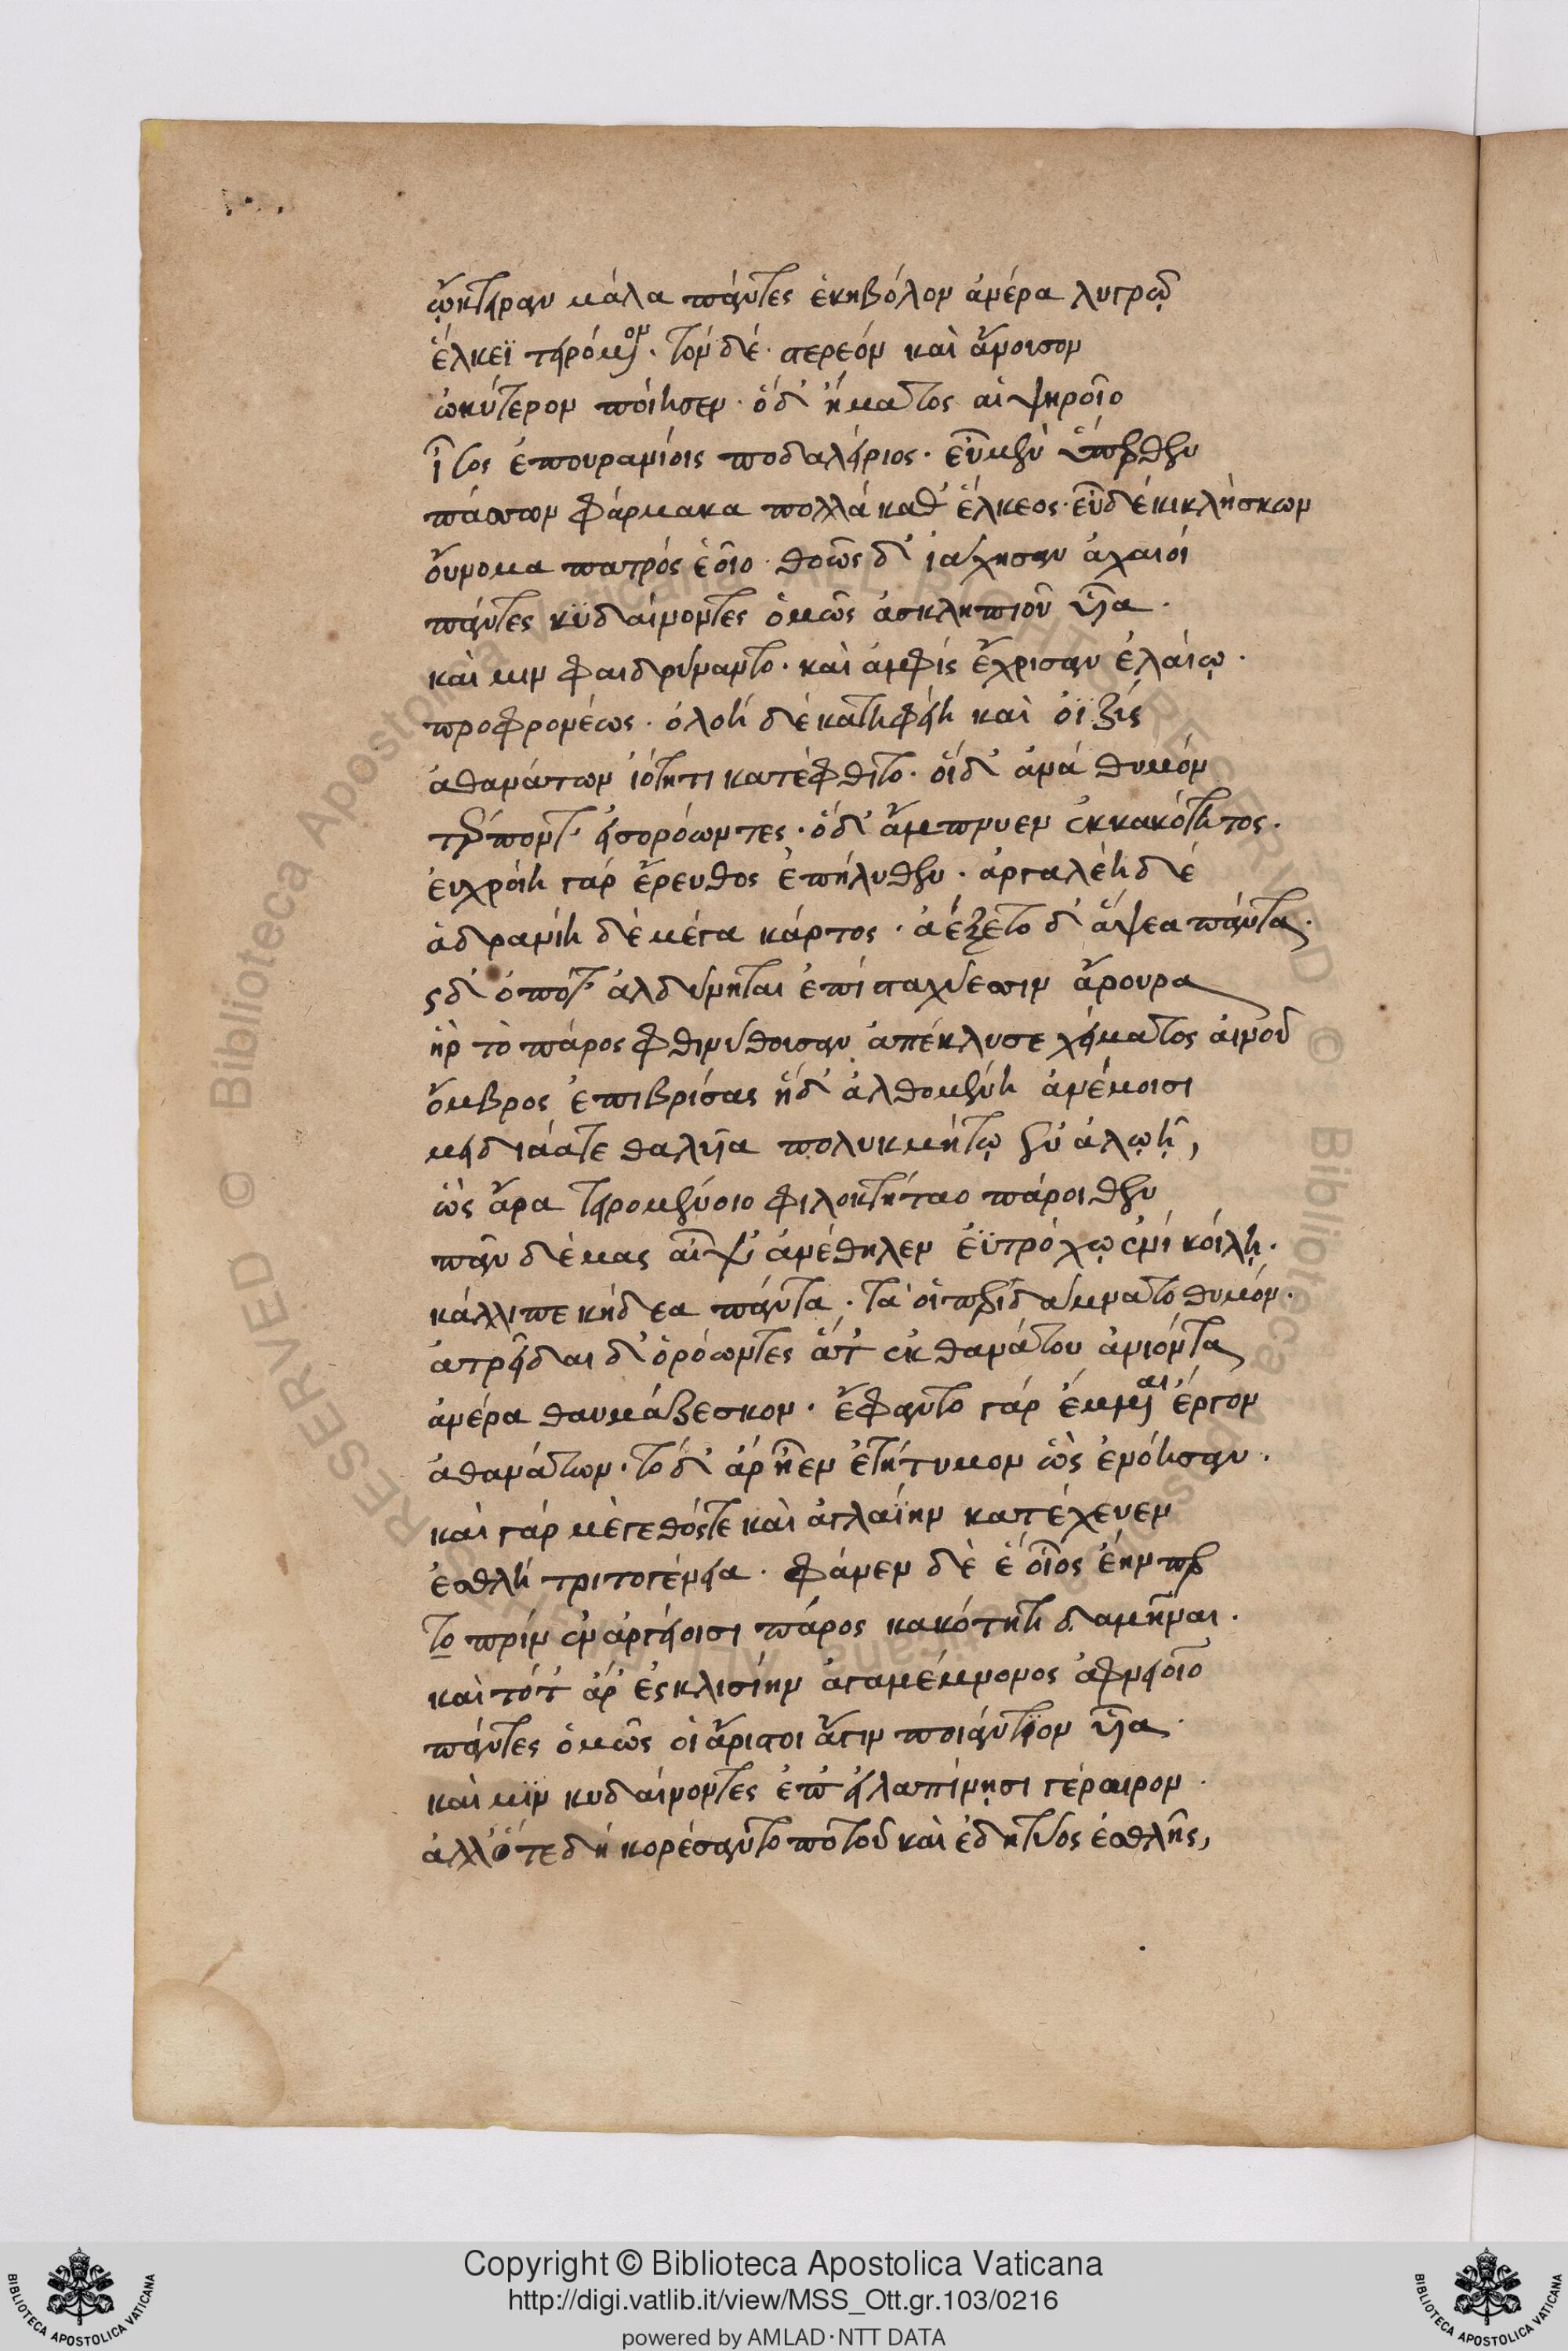 ᾤκτηραν μάλα πάντες ἑκηβόλον ἀνέρα λυγρῷ
ἕλκεϊ τειρόμενον. τὸν δὲ στερεὸν καὶ ἄνοισον
ὠκύτερον ποίησεν. ὁ δ' ἤματος αἰψηροῖο
ἶσος ἐπουρανίοις ποδαλείριος. εὖ μὲν ὕπερθεν
πάσσων φάρμακα πολλὰ καθ' ἕλκεος. εὖ δὲ κικλήσκων
οὔνομα πατρὸς ἑοῖο. θοῶς δ' ἰάχησαν ἀχαιοὶ
πάντες κυδαίνοντες ὁμῶς ἀσκληπιοῦ υἷα.
καί μιν φαιδρύναντο. καὶ ἀμφὶς ἔχρισαν ἐλαίῳ.
προφρονέως. ὀλοὴ δὲ κατηφείη καὶ ὀϊζὺς
ἀθανάτων ἰότητι κατέφθιτο. οἱ δ' ἀνὰ θυμὸν
τέρποντ' εἰσορόωντες. ὁ δ' ἄμπνυεν ἐκ κακότητος.
ἐυχροίη γὰρ ἔρευθος ἐπήλυθεν. ἀργαλέη δὲ
ἀδρανίη δὲ μέγα κάρτος. ἀέξετο δ' ἅψεα πάντα.
ὡς δ' ὁπότ' ἀλδύνηται ἐπισταχύεσσιν ἄρουρα
ἣν τὸ πάρος φθινύθουσαν ἀπέκλυσε χείματος αἰνοῦ
ὄμβρος ἐπιβρίσας ἡ δ' ἀλθομένη ἀνέμοισι
μειδιάᾳτε θαλυῖα πολυκμήτῳ ἐν ἀλωῇ,
ὣς ἄρα τειρομένοιο φιλοκτήταο πάροιθεν
πᾶν δέμας αἶψ' ἀνέθηλεν ἐϋτρόχῳ ἐνὶ κοίλῃ.
κάλλιπε κήδεα πάντα. τά οἱ περιδάμνατο θυμόν.
ἀτρεῖδαι δ' ὁρόωντες ἅτ' ἐκ θανάτου ἀνιόντα
ἀνέρα θαυμάζεσκον. ἔφαντο γὰρ ἔμμεναι ἔργον
ἀθανάτων. τὸ δ' ἄρ' ἦεν ἐτήτυμον ὡς ἐνόησαν.
καὶ γὰρ μέγεθός τε καὶ ἀγλαΐην κατέχευεν
ἐσθλὴ τριτογένεια. φάνεν δὲ ἑ οἷος ἔην περ
τὸ πρὶν ἐν ἀργείοισι πάρος κακότητι δαμῆναι.
καὶ τότ' ἄρ' ἐς κλισίην ἀγαμέμνονος ἀφνειοῖο
πάντες ὁμῶς οἱ ἄριστοι ἄγιν ποιάντιον υἷα.
καί μιν κυδαίνοντες ἐπ' εἰλαπίνῃσι γέραιρον.
ἀλλ' ὅτε δὴ κορέσαντο ποτοῦ καὶ ἐδητύος ἐσθλῆς,
Copyright © Biblioteca Apostolica Vaticana
http://digi.vatlib.it/view/MSS_Ott.gr.103/0216
powered by AMLAD·NTT DATA